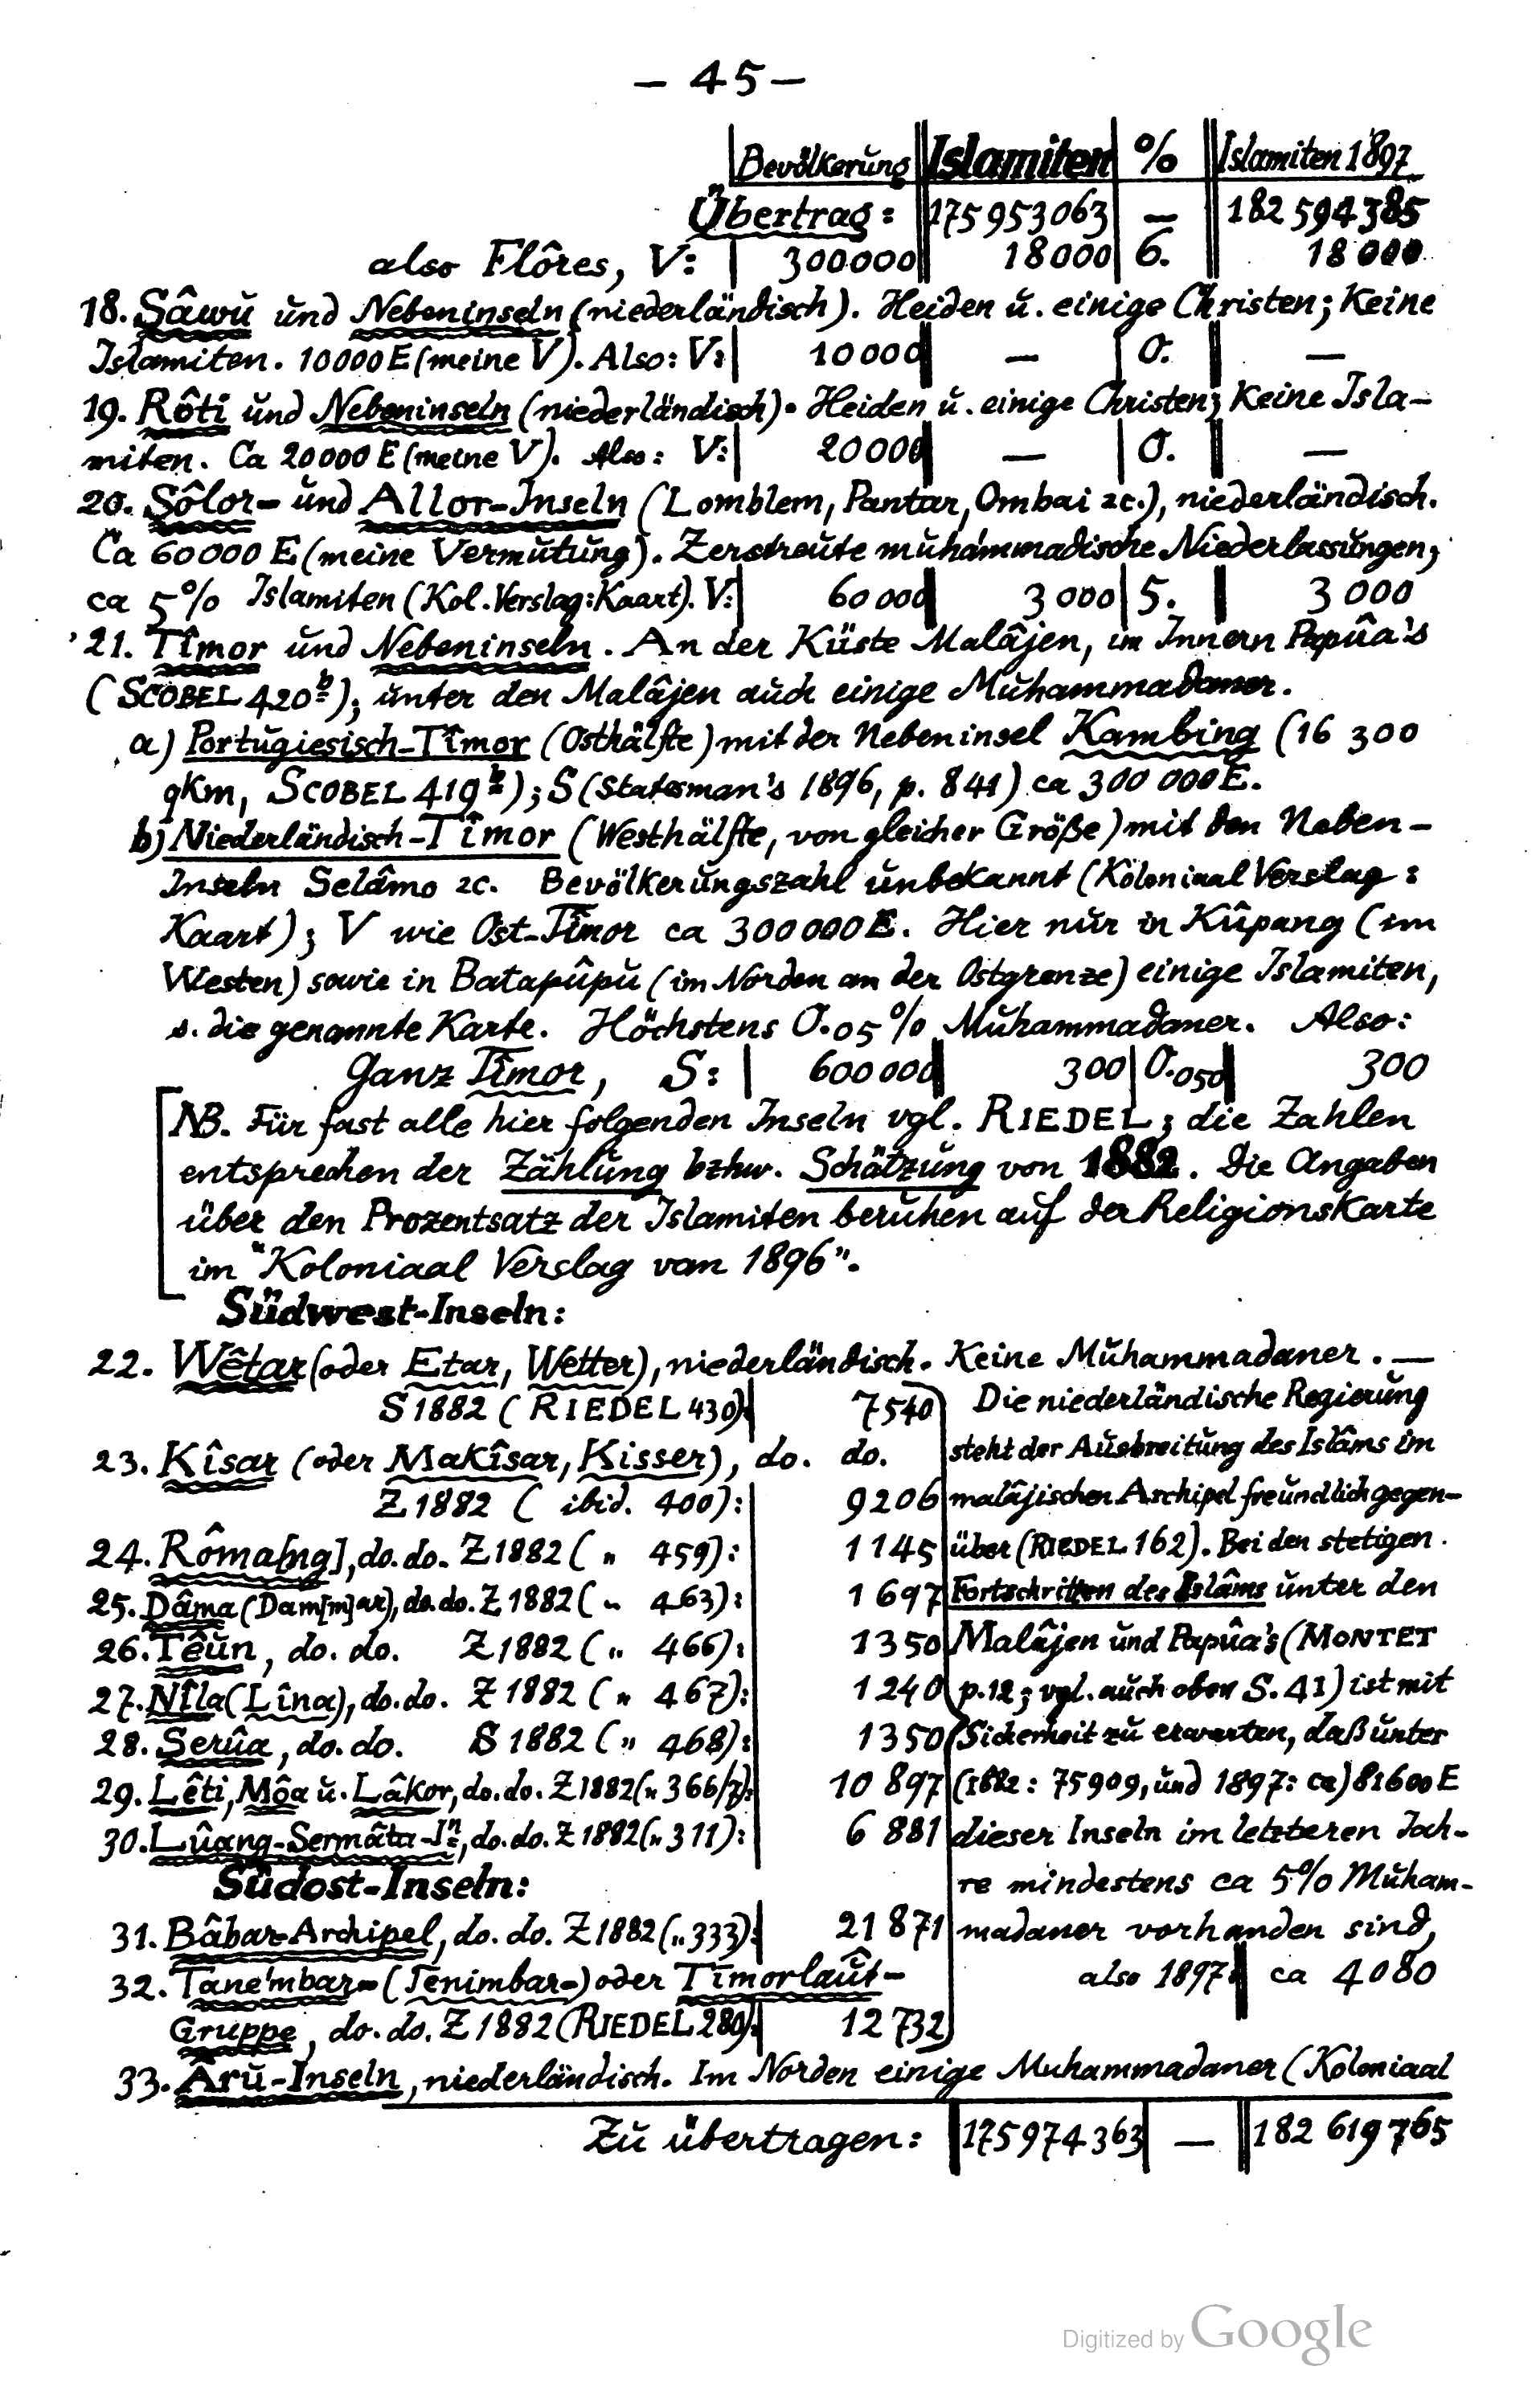 — 45 —
Bevölkerung | Islamiten | % | Islamiten 1897
Übertrag: 175953063 — 182 594 385
also Flôres, V: 300000 18000 6. 18 000
18. Sâwu und Nebeninseln (niederländisch). Heiden u. einige Christen; Keine
Islamiten. 10000 E (meine V). Also: V: 10000 — 0. —
19. Rôti und Nebeninseln (niederländisch). Heiden u. einige Christen; Keine Isla-
miten. Ca 20000 E (meine V). Also: V: 20000 — 0. —
20. Sôlor- und Allor-Inseln (Lomblem, Pantar, Ombai 2c.), niederländisch.
Ca 60000 E (meine Vermutung). Zerstreute muhammadische Niederlassungen;
ca 5% Islamiten (Kol. Verslag: Kaart). V: 60 000 3 000 5. 3 000
21. Tîmor und Nebeninseln. An der Küste Malâjen, im Innern Papûa's
(SCOBEL 420b); unter den Malâjen auch einige Muhammadaner.
a) Portugiesisch-Tîmor (Osthälfte) mit der Nebeninsel Kambing (16 300
qkm, SCOBEL 419b); S (Statesman's 1896, p. 841) ca 300 000 E.
b) Niederländisch-Tîmor (Westhälfte, von gleicher Größe) mit den Neben-
Inseln Selâmo 2c. Bevölkerungszahl unbekannt (Koloniaal Verslag:
Kaart); V wie Ost-Tîmor ca 300000 E. Hier nur in Kûpang (im
Westen) sowie in Batapûpu (im Norden an der Ostgrenze) einige Islamiten,
s. die genannte Karte. Höchstens 0.05% Muhammadaner. Also:
Ganz Tîmor, S: 600 000 300 0.050 300
NB. Für fast alle hier folgenden Inseln vgl. RIEDEL; die Zahlen
entsprechen der Zählung bzhw. Schätzung von 1882. Die Angaben
über den Prozentsatz der Islamiten beruhen auf der Religionskarte
im "Koloniaal Verslag van 1896".
Südwest-Inseln:
22. Wêtar (oder Etar, Wetter), niederländisch. Keine Muhammadaner. —
S 1882 (RIEDEL 430): 7540
23. Kîsar (oder Makîsar, Kisser), do. do.
Z 1882 (ibid. 400): 9206
24. Rôma[ng], do. do. Z 1882 (" 459): 1145
25. Dâma (Dam[m]ar), do. do. Z 1882 (" 463): 1 697
26. Têun, do. do. Z 1882 (" 466): 1350
27. Nîla (Lîna), do. do. Z 1882 (" 467): 1240
28. Serûa, do. do. S 1882 (" 468): 1350
29. Lêti, Môa u. Lâkor, do. do. Z 1882 (" 366/7): 10 897
30. Lûang-Sermâta-In, do. do. Z 1882 (" 311): 6 881
Südost-Inseln:
31. Bâbar-Archipel, do. do. Z 1882 (" 333): 21 871
32. Tane'mbar- (Tenimbar-) oder Tîmorlaût-
Gruppe, do. do. Z 1882 (RIEDEL 280): 12 732
Die niederländische Regierung
steht der Ausbreitung des Islâms im
malâjischen Archipel freundlich gegen-
über (RIEDEL 162). Bei den stetigen
Fortschritten des Islâms unter den
Malâjen und Papûa's (MONTET
p. 12; vgl. auch oben S. 41) ist mit
Sicherheit zu erwarten, daß unter
(1882: 75909, und 1897: ca) 81600 E
dieser Inseln im letzteren Jah-
re mindestens ca 5% Muham-
madaner vorhanden sind,
also 1897: ca 4080
33. Âru-Inseln, niederländisch. Im Norden einige Muhammadaner (Koloniaal
Zu übertragen: 175974363 — 182 619 765
Digitized by Google